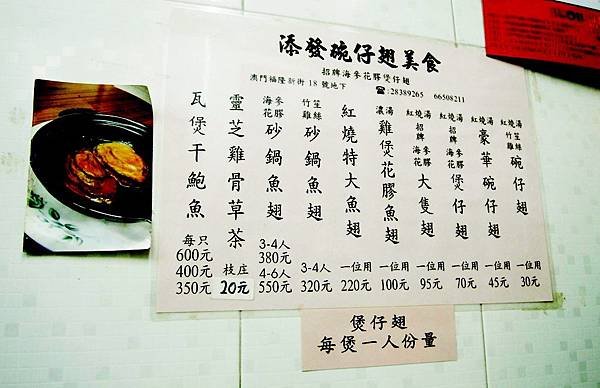 添發碗仔翅美食
招牌海參花膠煲仔翅
澳門福隆新街 18 號地下
☎:28389265 66508211
紅燒湯 竹笙雞絲 碗仔翅 一位用 30元
紅燒湯 豪華碗仔翅 一位用 45元
紅燒湯 招牌海參花膠 煲仔翅 一位用 70元
紅燒湯 招牌海參花膠 大隻翅 一位用 95元
濃湯 雞煲花膠魚翅 一位用 100元
紅燒特大魚翅 一位用 220元
竹笙雞絲 砂鍋魚翅 3-4人 320元
海參花膠 砂鍋魚翅 3-4人 380元 4-6人 550元
靈芝雞骨草茶 枝庄 20元
瓦煲干鮑魚 每只 600元 400元 350元
煲仔翅
每煲一人份量